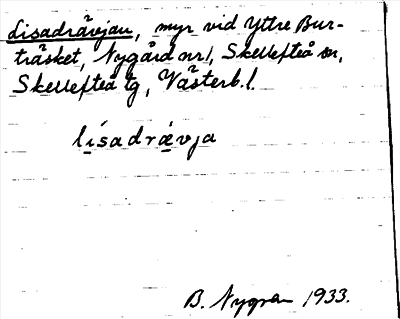 Lisadrävjan, myr vid Yttre Bur-
träsket, Nygård nr 1, Skellefteå sn,
Skellefteå tg, Västerb. l.
lisadrævja
B. Nygren 1933.